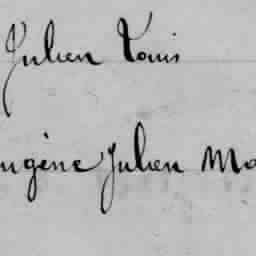 Julien Louis
ugène Julien Ma